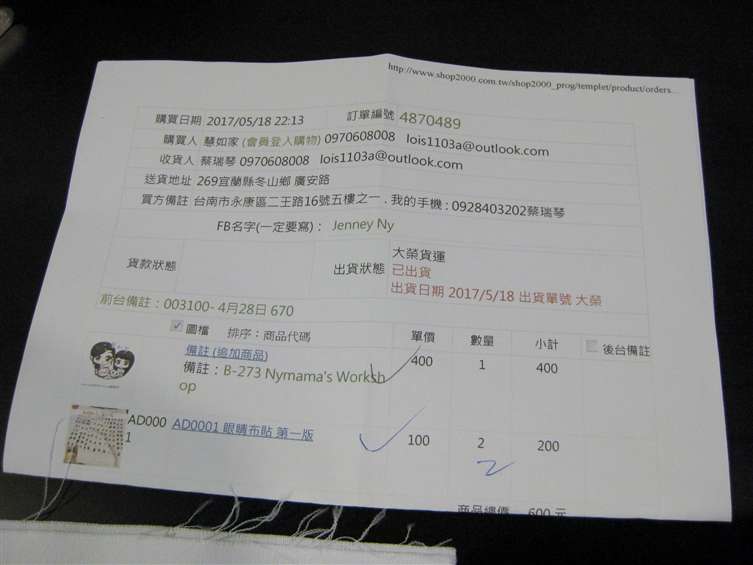 http://www.shop2000.com.tw/shop2000_prog/templet/product/orders...
購買日期 2017/05/18 22:13 訂單編號 4870489
購買人 慧如家 (會員登入購物) 0970608008 lois1103a@outlook.com
收貨人 蔡瑞琴 0970608008 lois1103a@outlook.com
送貨地址 269宜蘭縣冬山鄉 廣安路
買方備註 台南市永康區二王路16號五樓之一 . 我的手機 : 0928403202蔡瑞琴
FB名字(一定要寫) : Jenney Ny
貨款狀態 出貨狀態 大榮貨運
已出貨
出貨日期 2017/5/18 出貨單號 大榮
前台備註 : 003100- 4月28日 670
圖檔 排序 : 商品代碼 單價 數量 小計 後台備註
備註 (追加商品) 400 1 400
備註 : B-273 Nymama's Worksh
op
AD000
1 AD0001 眼睛布貼 第一版 100 2 200
2
商品總價 600 元